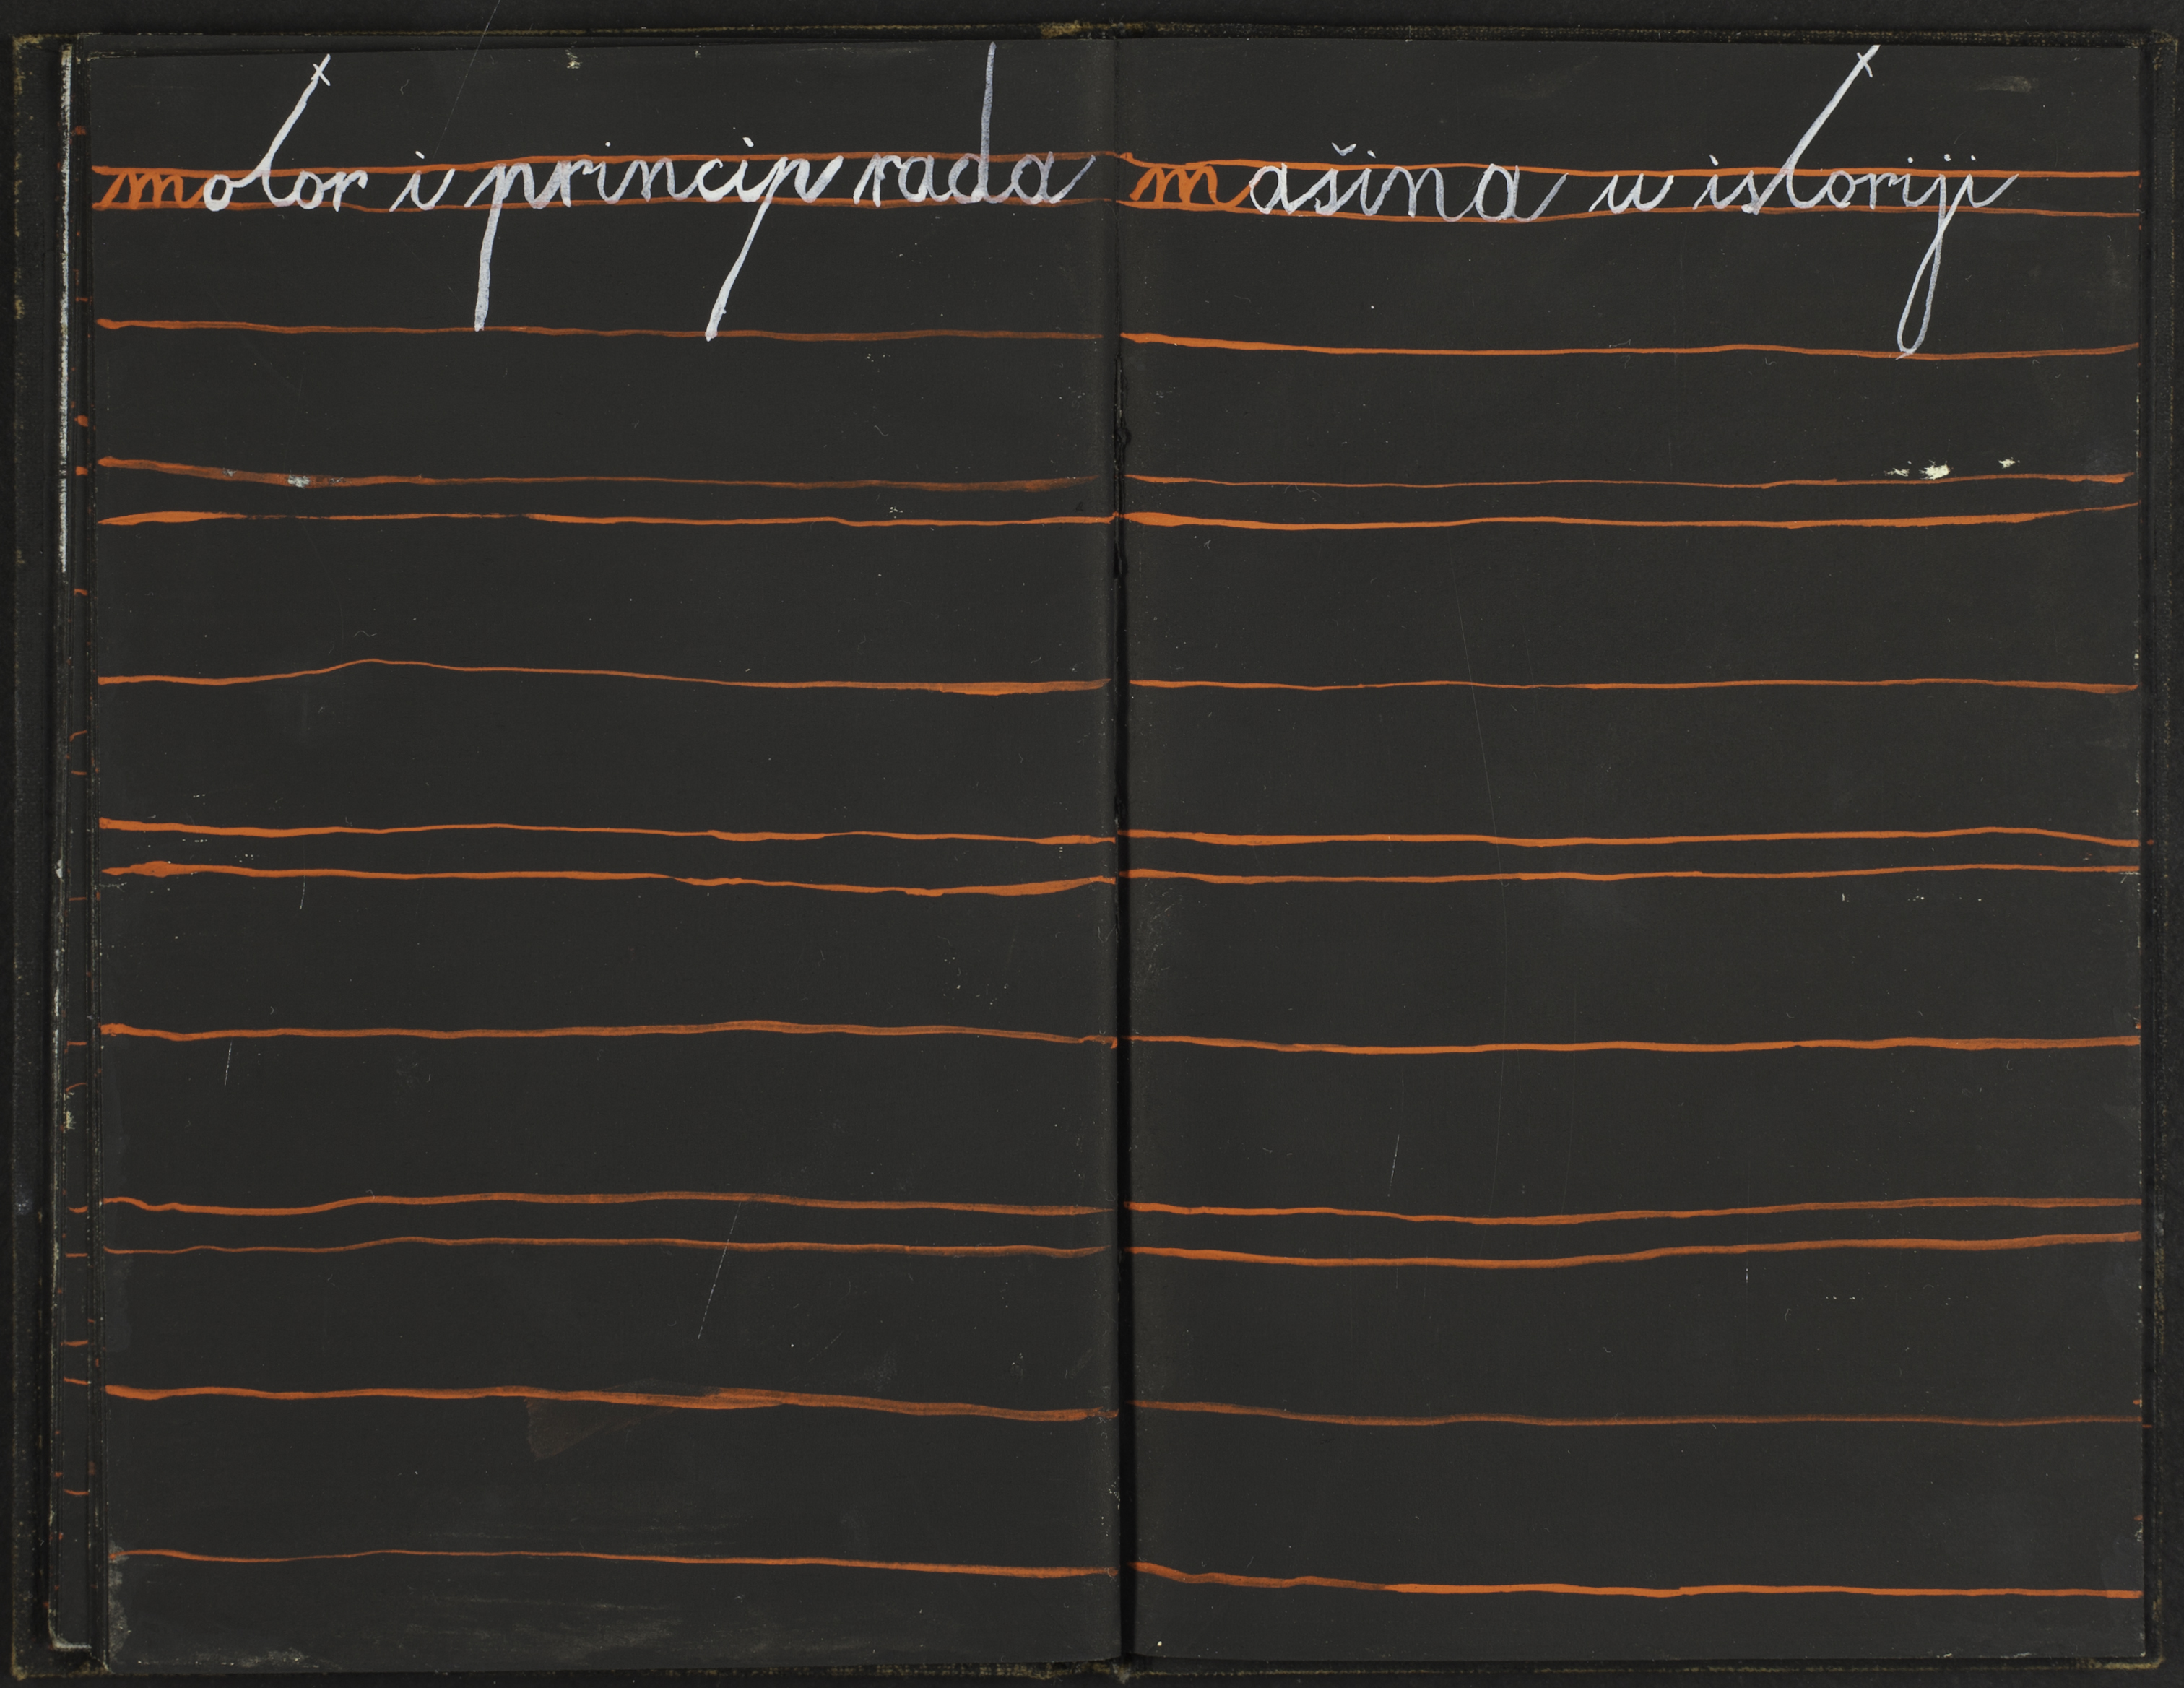 motor i princip rada
mašina u istoriji